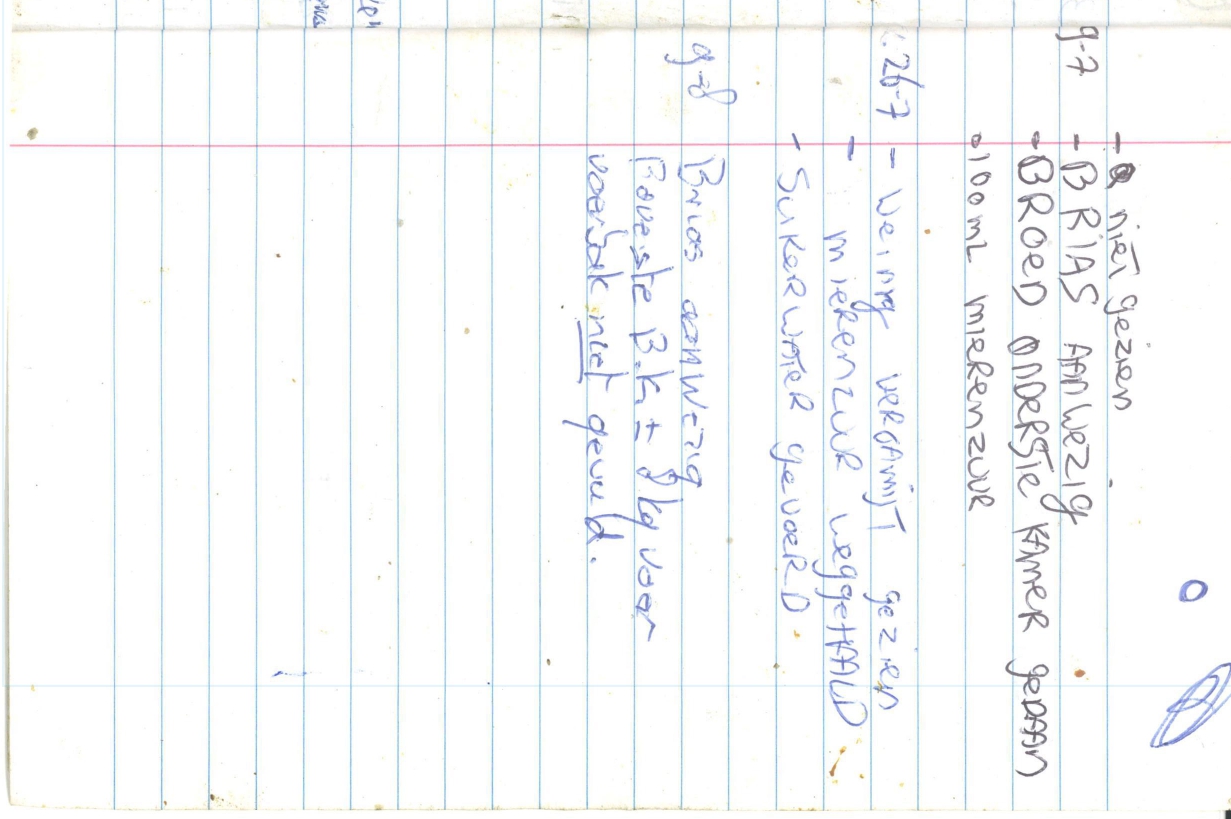 - niet gezien
9-7 - BRIAS AANWEZIG
- BROED ONDERSTE KAMER GEDAAN
• 100 ML mierenzuur
26-7 - Weinig VERDAMPT gezien
- mierenzuur weggeHAALD
- SUIKERWATER GEVOERD.
9-8 Brias aanwezig
Bovenste B.K ± 8 kg voer
voerbak niet gevuld.